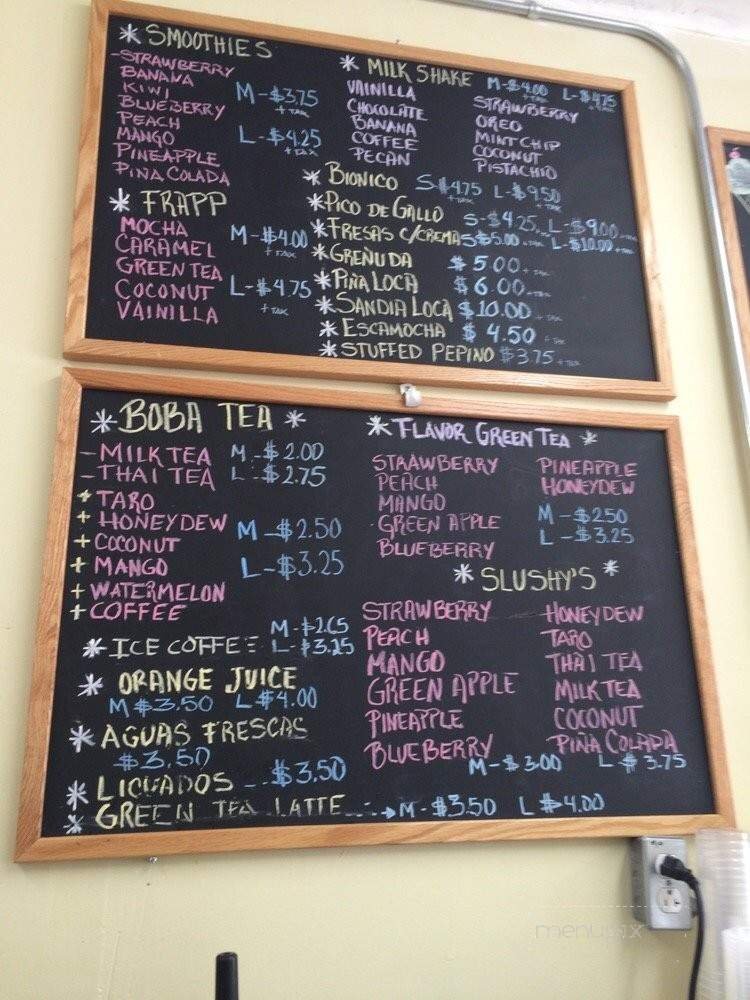 * SMOOTHIES
- STRAWBERRY
BANANA
KIWI
BLUEBERRY
PEACH
MANGO
PINEAPPLE
PINA COLADA
M-$3.75
+ TAX
L-$4.25
+ TAX
* FRAPP
MOCHA
CARAMEL
GREEN TEA
COCONUT
VAINILLA
M-$4.00
+ TAX
L-$4.75
+ TAX
* MILK SHAKE M-$4.00 L-$4.75
+ TAX
VAINILLA
CHOCOLATE
BANANA
COFFEE
PECAN
STRAWBERRY
OREO
MINT CHIP
COCONUT
PISTACHIO
* BIONICO S-$4.75 L-$9.50
* PICO DE GALLO S-$4.25 L-$9.00
* FRESAS C/CREMA S$5.00 L-$10.00
* GREÑUDA $5.00
* PIÑA LOCA $6.00
* SANDIA LOCA $10.00
* ESCAMOCHA $4.50
* STUFFED PEPINO $3.75
* BOBA TEA *
- MILK TEA M-$2.00
- THAI TEA L-$2.75
+ TARO
+ HONEYDEW
+ COCONUT
+ MANGO
+ WATERMELON
+ COFFEE
M-$2.50
L-$3.25
* ICE COFFEE M-$2.65
L-$3.25
* ORANGE JUICE
M$3.50 L$4.00
* AGUAS FRESCAS
$3.50
* LICUADOS - $3.50
* GREEN TEA LATTE ---→ M-$3.50 L$4.00
* FLAVOR GREEN TEA *
STRAWBERRY
PEACH
MANGO
GREEN APPLE
BLUEBERRY
PINEAPPLE
HONEYDEW
M-$2.50
L-$3.25
* SLUSHY'S *
STRAWBERRY
PEACH
MANGO
GREEN APPLE
PINEAPPLE
BLUEBERRY
HONEYDEW
TARO
THAI TEA
MILK TEA
COCONUT
PIÑA COLADA
M-$3.00 L-$3.75
menupix